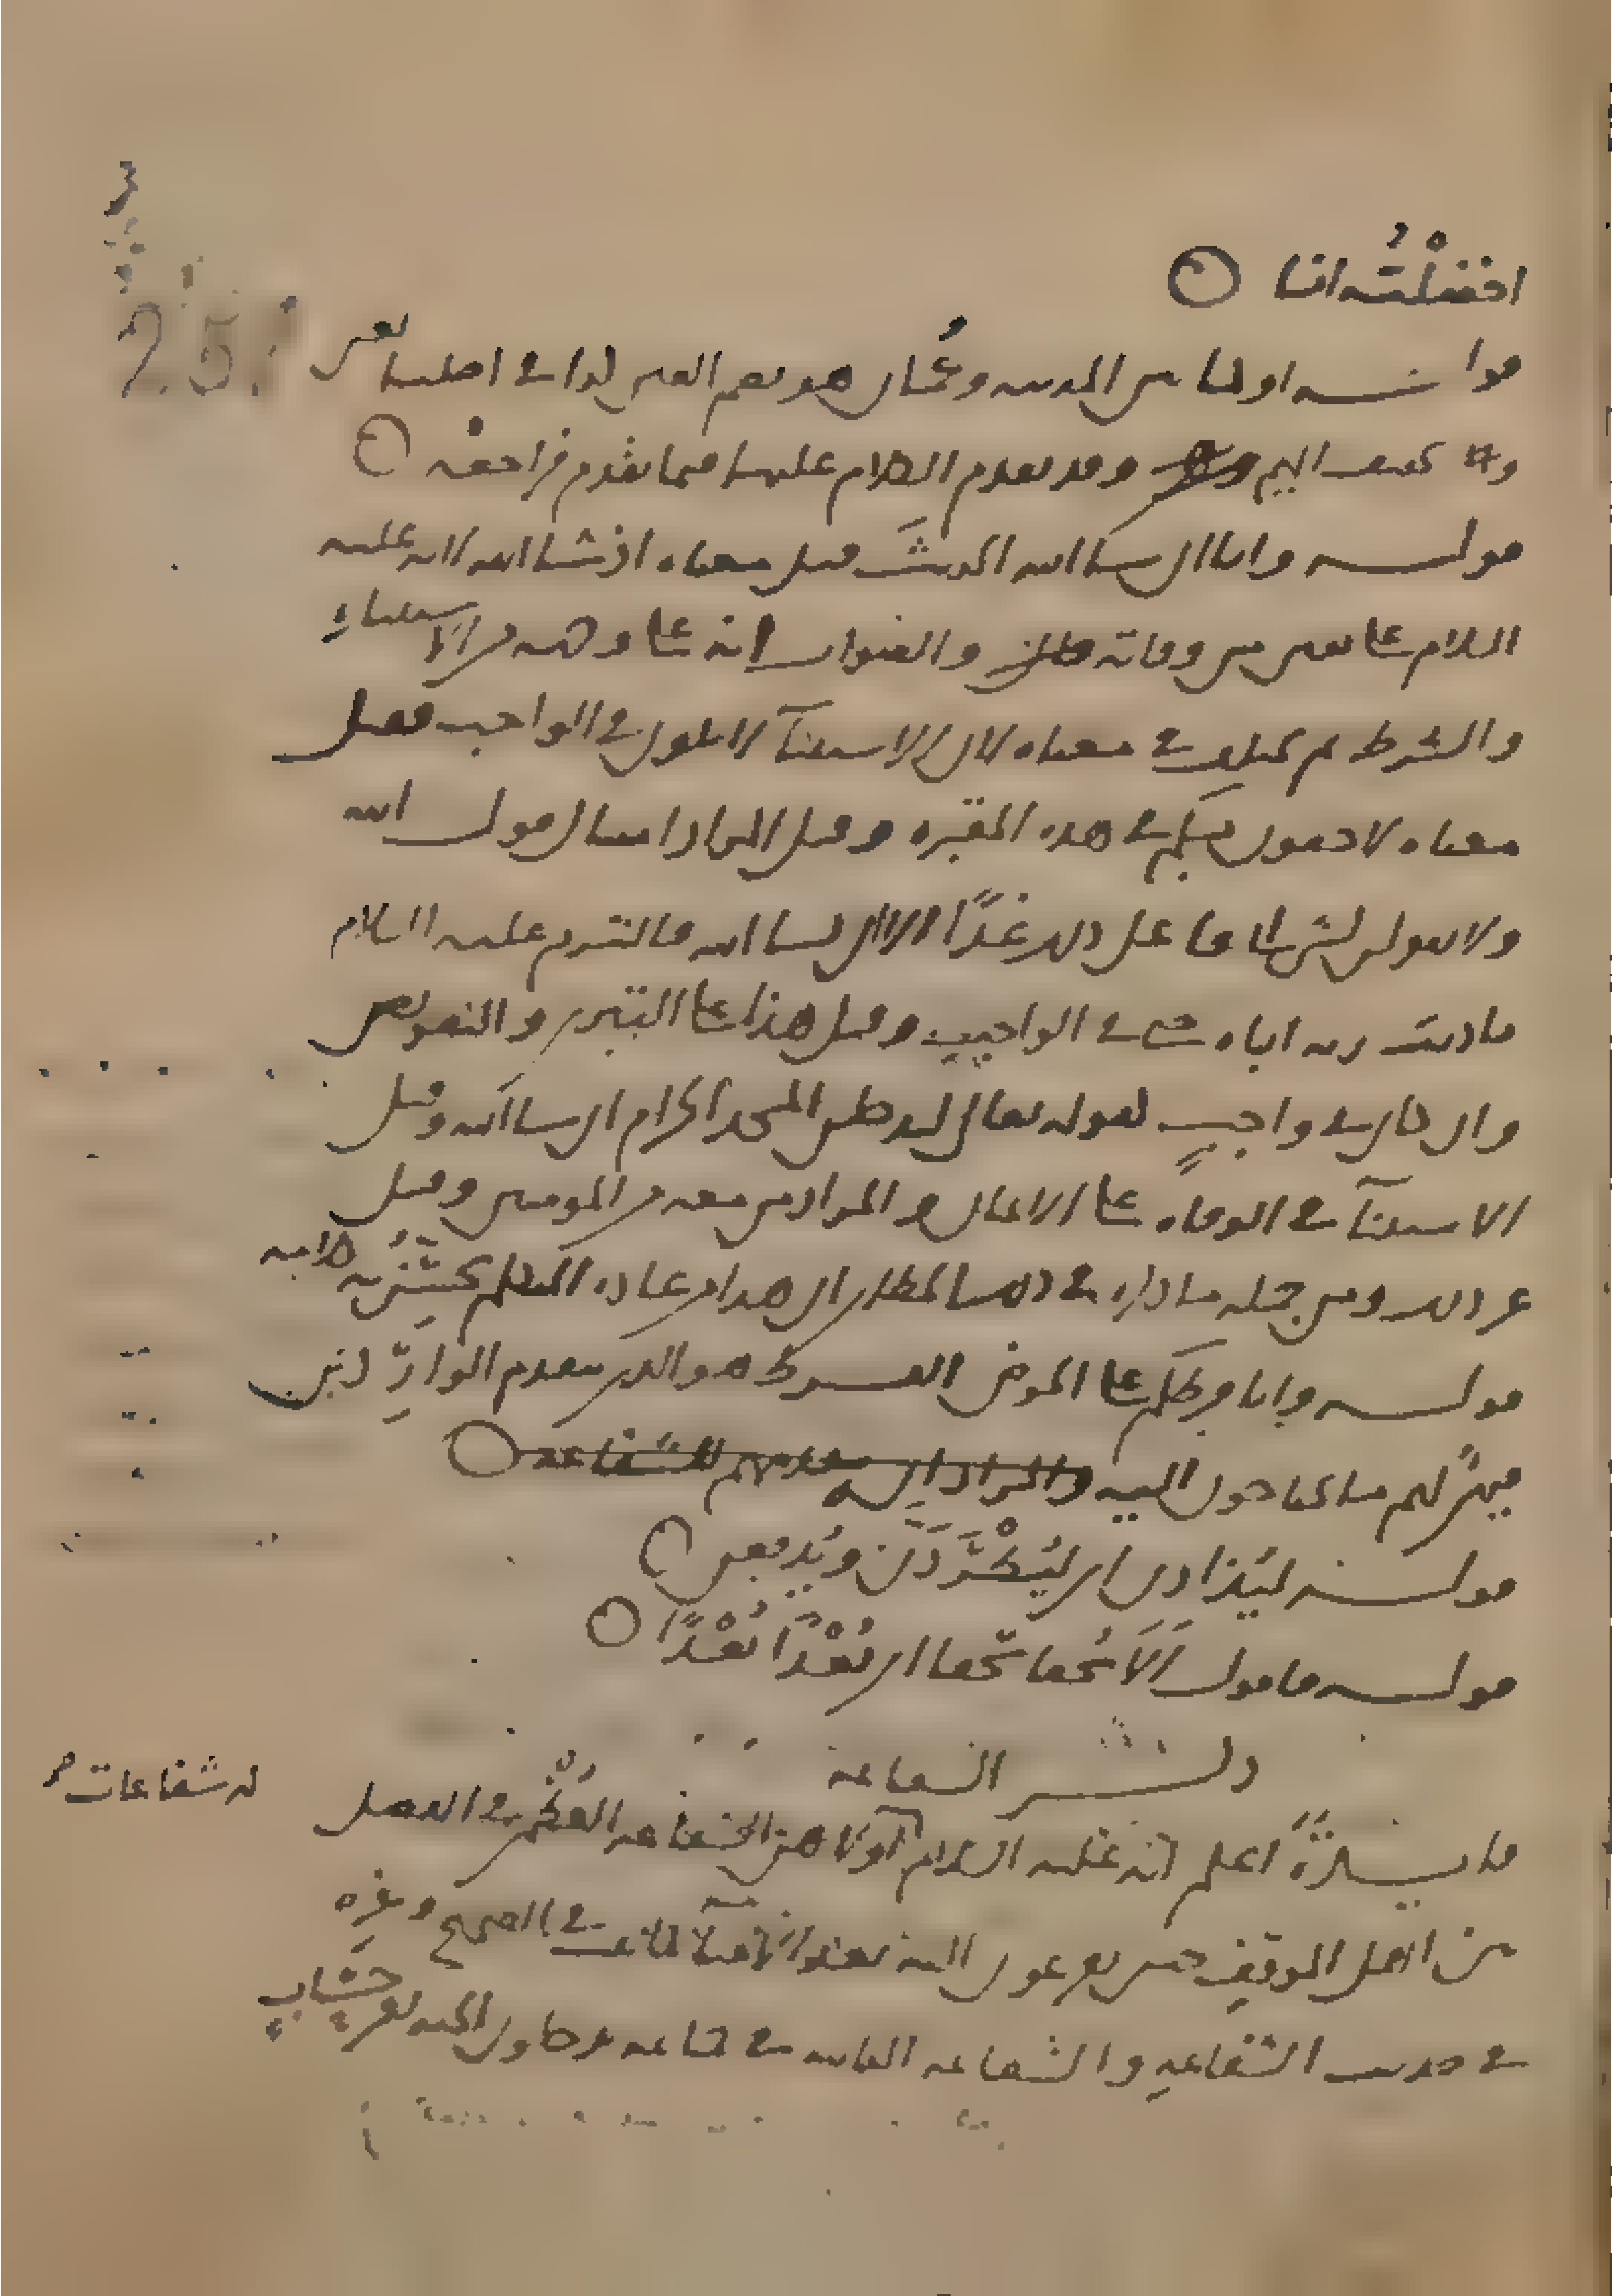 اختصلته انا
قوله او لما بين المدينه وعُمان هو بضم العين كذا في اصلنا بغير
وقد تقدم الكلام عليها فيما تقدم فراجعه
قوله وانا ان شا الله الحديث قيل معناه اذ شا الله لانه عليه
السلام على يقين من وفاته والصواب انه على وجهه من الاستثناء
والشرط ثم اختلف في معناه لان الاستثنآ لا يكون في الواجب فقيل
معناه لاحقون بكم في هذه المقبره وقيل المراد امتثال قول الله
ولا تقولن لشئ اني فاعل ذلك غدًا الا ان يشا الله فالتزم عليه السلام
ما ادبه ربه اياه حتى في الواجب وقيل هذا على التبري والتفويض
وان كان في واجبٍ لقوله تعالى لتدخلن المسجد الحرام ان شا الله وقيل
الاستثنآ في الوفاه على الايمان والمراد من معه من المومنين وقيل
غير ذلك ومن جمله ما ذكره في ذلك الخطابي ان هذا من عاده المتكلم يحسّن به كلامه
قوله وانا فرطكم على الحوض الفرط هو الذي يتقدم الوارِدين
فيهيئ لهم ما يحتاجون اليه
قوله ليُذادن اي ليُطْرَدَنّ ويُدفعن
قوله فاقول اَلَا سُحقا سُحقا اي بُعْدًا بُعْدًا
ذكر الشفاعه
فايدةً اعلم انه عليه السلام له شفاعات اولاهن الشفاعه العُظْمى في الفصل
من اهل الموقف حين يفزعون اليه بعد الانبيآ كما ثبت في الصحيح وغيره
في حديث الشفاعه والشفاعه الثانيه في جماعه يدخلون الجنه بغير حِسَابٍ